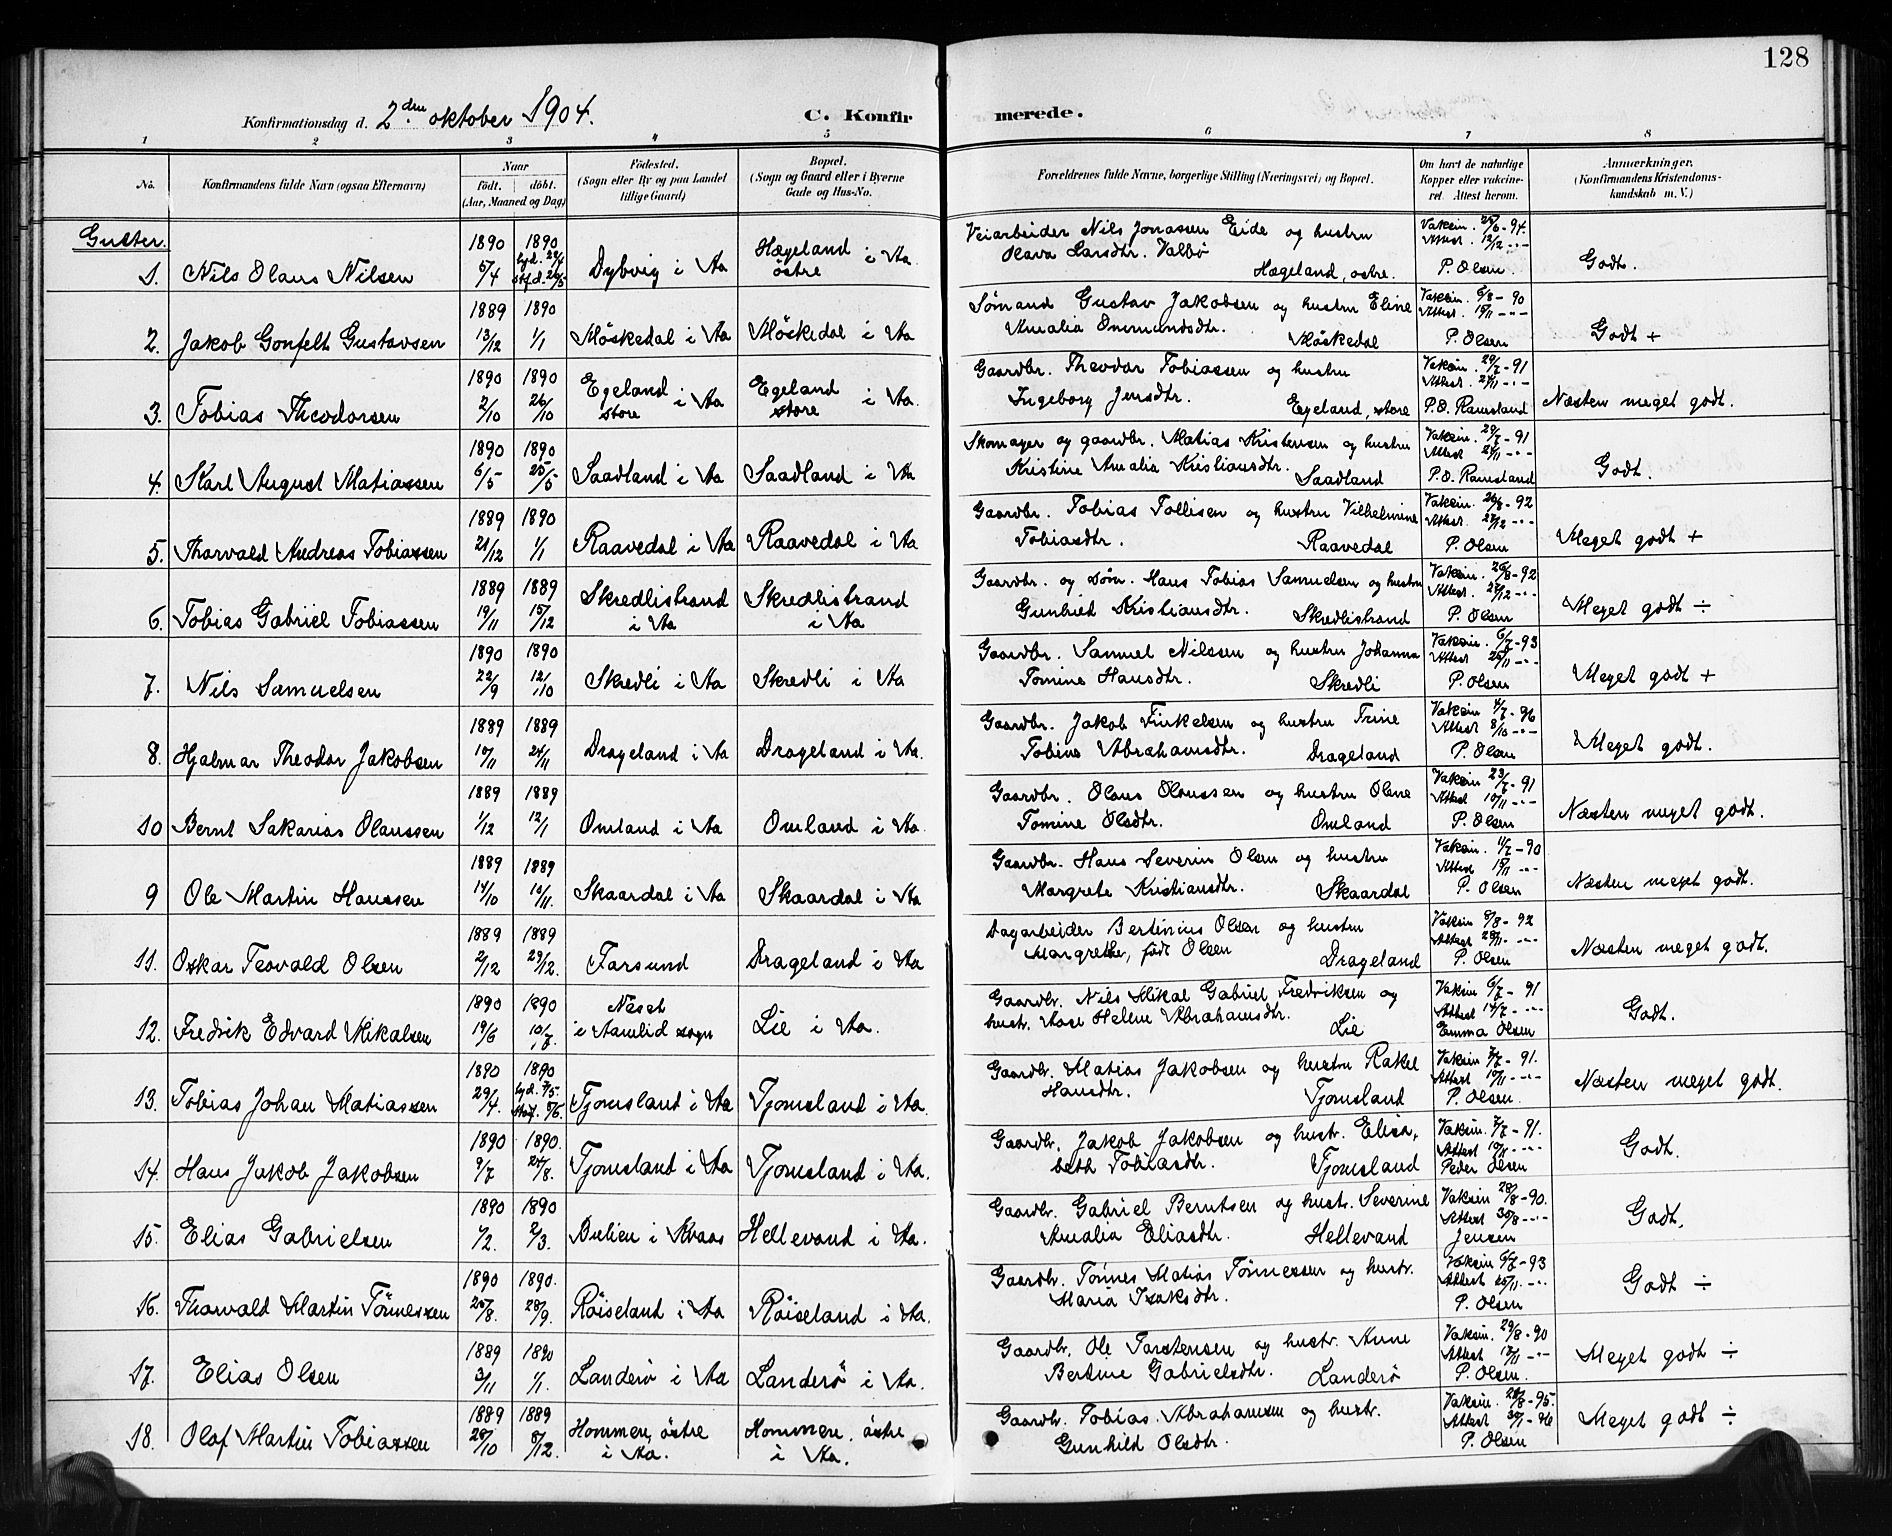 128
Konfirmationsdag d. 2den oktober 1904. C. Konfirmerede.
1 2 3 4 5 6 7 8
No. Konfirmandens fulde Navn (ogsaa Efternavn) Naar født. døbt. (Aar, Maaned og Dag) Fødested. (Sogn eller By og paa Landet tillige Gaard) Bopæl. (Sogn og Gaard eller i Byerne Gade og Hus-No. Forældrenes fulde Navne, borgerlige Stilling (Næringsvei) og Bopæl. Om havt de naturlige Kopper eller vaccineret. Attest herom. Anmærkninger. (Konfirmandens Kristendomskundskab m. V.)
Gutter.
1. Nils Olaus Nilsen 1890 5/4 1890 Dybvig i Aa Hægeland østre i Aa. Veiarbeider Nils Jonassen Eide og hustru Olava Larsdtr. Valbø Hægeland, østre. Vaksin. 94. Attest. 12/12 P. Olsen. Godt.
2. Jakob Gonfelt Gustavsen 1889 13/12 1890 1/1 Møskedal i Aa Møskedal i Aa Sømand Gustav Jakobsen og hustru Eline Amalia Ommundsdtr. Møskedal Vaksin. 6/8-90 Attest. P. Olsen Godt +
3. Tobias Theodorsen 1890 2/10 1890 26/10 Egeland store i Aa Egeland store i Aa. Gaardbr. Theodor Tobiassen og hustru Ingeborg Jensdtr. Egeland, store Vaksin. 29/7-91 Attest. 27/11 P. O. Ramsland Næsten meget godt.
4. Karl August Matiassen 1890 6/5 1890 25/5 Saadland i Aa Saadland i Aa Skomager og gaardbr. Matias Kristensen og hustru Kristine Amalia Kristiansdtr. Saadland Vaksin. 29/7-91 Attest. P. O. Ramsland Godt.
5. Thorvald Andreas Tobiassen 1889 21/12 1890 1/1 Raavedal i Aa Raavedal i Aa Gaardbr. Tobias Tollisen og hustru Vilhelmine Tobiasdtr. Raavedal Vaksin. 26/8-92 Attest. 27/12 P. Olsen Meget godt +
6. Tobias Gabriel Tobiassen 1889 19/11 1889 15/12 Skredlistrand i Aa Skredlistrand i Aa Gaardbr. og søm. Hans Tobias Samuelsen og hustru Gunbiet Kristiansdtr. Skredlistrand Vaksin. 26/8-92 Attest. 27/12 P. Olsen Meget godt ÷
7. Nils Samuelsen 1890 22/9 1890 12/10 Skredli i Aa Skredli i Aa Gaardbr. Samuel Nilssen og hustru Johanna Tomine Hansdtr. Skredli Vaksin. 6/7-93 Attest 25/11 P. Olsen Meget godt +
8. Hjalmar Theodor Jakobsen 1889 10/11 1889 24/11 Drageland i Aa Drageland i Aa. Gaardbr. Jakob Tinkelsen og hustru Trine Tobine Abrahamsdtr. Drageland Vaksin 4/7-96 Attest 8/10 P. Olsen Meget godt.
10 Bernt Sakarias Olaussen 1889 1/12 1889 12/1 Omland i Aa Omland i Aa. Gaardbr. Olaus Olaussen og hustru Olene Tomine Olsdtr. Omland Vaksin 23/7-91 Attest 10/11 P. Olsen Næsten meget godt.
9 Ole Martin Hanssen 1889 14/10 1889 10/11. Skaardal i Aa Skaardal i Aa Gaardbr. Hans Severin Olsen og hustru Margrete Kristiansdtr. Skaardal Vaksin. 90 Attest P. Olsen Næsten meget godt.
11. Oskar Teovald Olsen 1889 2/12 1889 29/12. Farsund Drageland i Aa Dagarbeider Bertinius Olsen og hustru Margrethe, født Olsen Drageland Vaksin 8/8-92 Attest. P. Olsen Næsten meget godt.
12. Fredrik Edvard Mikalsen 1890 19/6 1890 10/7 Neset i Aamlid sogn Lie i Aa. Gaardbr. Nils Mikal Gabriel Fredriksen og hustr. Aase Helene Abrahamsdtr. Lie Vaksin 6/7-91 Attest 14/7 Emma Olsen Godt.
13. Tobias Johan Matiassen 1890 29/4. 1890 Tjomsland i Aa Tjomsland i Aa. Gaardbr. Matias Jakobsen og hustru Rakel Hansdtr. Tjomsland Vaksin 7/7-91. Attest 10/11 P. Olsen. Næsten meget godt.
14. Hans Jakob Jakobsen 1890 9/7 1890. 24/8. Tjomsland i Aa Tjomsland i Aa. Gaardbr. Jakob Jakobsen og hustr. Elisabeth Tobiasdtr. Tjomsland Vaksin. 7/7-91. Attest 10/11 Peder Olsen Godt.
15. Elias Gabrielsen 1890 1/2. 1890 2/3. i Kvaas Hellevand i Aa. Gaardbr. Gabriel Berntsen og hustr. Severine Amalia Eliasdtr. Hellevand Vaksin 28/8-90. Attest 30/8 Jensen Godt.
16. Thorvald Martin Tönnessen 1890 20/8. 1890. 28/9. Röiseland i Aa Röiseland i Aa. Gaardbr. Tönnes Matias Tönnessen og hustr. Maria Isaksdtr. Vaksin 6/7-93 Attest 25/11 P. Olsen Godt ÷
17. Elias Olsen 1889 3/11 1890 1/1. Landerö i Aa Landerö i Aa. Gaardbr. Ole Torstensen og hustr. Anne Bertine Gabrielsdtr. Landerö Vaksin. 29/8-90 Attest P. Olsen Meget godt ÷
18. Olaf Martin Tobiassen 1889 20/10 1889 8/12. Hommen, östre i Aa. Hommen, östre i Aa. Gaardbr. Tobias Abrahamsen og hustr. Gunhild Olsdtr. Vaksin. 95. Attest 96 P. Olsen Meget godt ÷